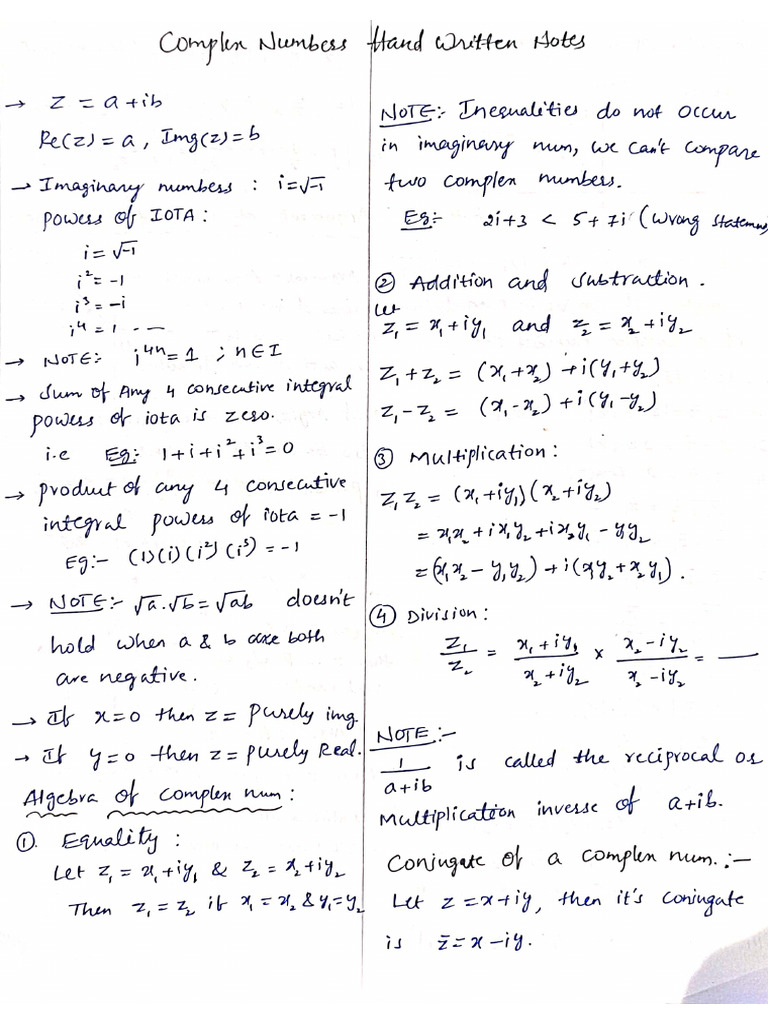 Complex Numbers Hand Written Notes
→ Z = a+ib
Re(z) = a, Img(z) = b
→ Imaginary numbers : i = √-1
powers of IOTA :
i = √-1
i² = -1
i³ = -i
i⁴ = 1 - - -
→ NOTE: i⁴ⁿ = 1 ; n ∈ I
→ Sum of Any 4 consecutive integral
powers of iota is zero.
i.e Eg: 1+i+i²+i³ = 0
→ product of any 4 consecutive
integral powers of iota = -1
Eg:- (1)(i)(i²)(i³) = -1
→ NOTE:- √a.√b = √ab doesn't
hold when a & b are both
are negative.
→ If x=0 then z = purely img.
→ If y=0 then z = purely Real.
Algebra of complex num :
①. Equality :
Let z₁ = x₁+iy₁ & z₂ = x₂+iy₂
Then z₁ = z₂ if x₁ = x₂ & y₁=y₂
NOTE:- Inequalities do not occur
in imaginary num, we can't compare
two complex numbers.
Eg:- 2i+3 < 5+7i (wrong statement)
② Addition and subtraction.
Let
z₁ = x₁+iy₁ and z₂ = x₂+iy₂
z₁+z₂ = (x₁+x₂)+i(y₁+y₂)
z₁-z₂ = (x₁-x₂)+i(y₁-y₂)
③ Multiplication :
z₁z₂ = (x₁+iy₁)(x₂+iy₂)
= x₁x₂+ix₁y₂+ix₂y₁-y₁y₂
= (x₁x₂-y₁y₂)+i(x₁y₂+x₂y₁).
④ Division :
z₁/z₂ = x₁+iy₁/x₂+iy₂ × x₂-iy₂/x₂-iy₂ = ——
NOTE:-
1/a+ib is called the reciprocal or
Multiplication inverse of a+ib.
Conjugate of a complex num. :-
Let z = x+iy, then it's conjugate
is z̄ = x-iy.